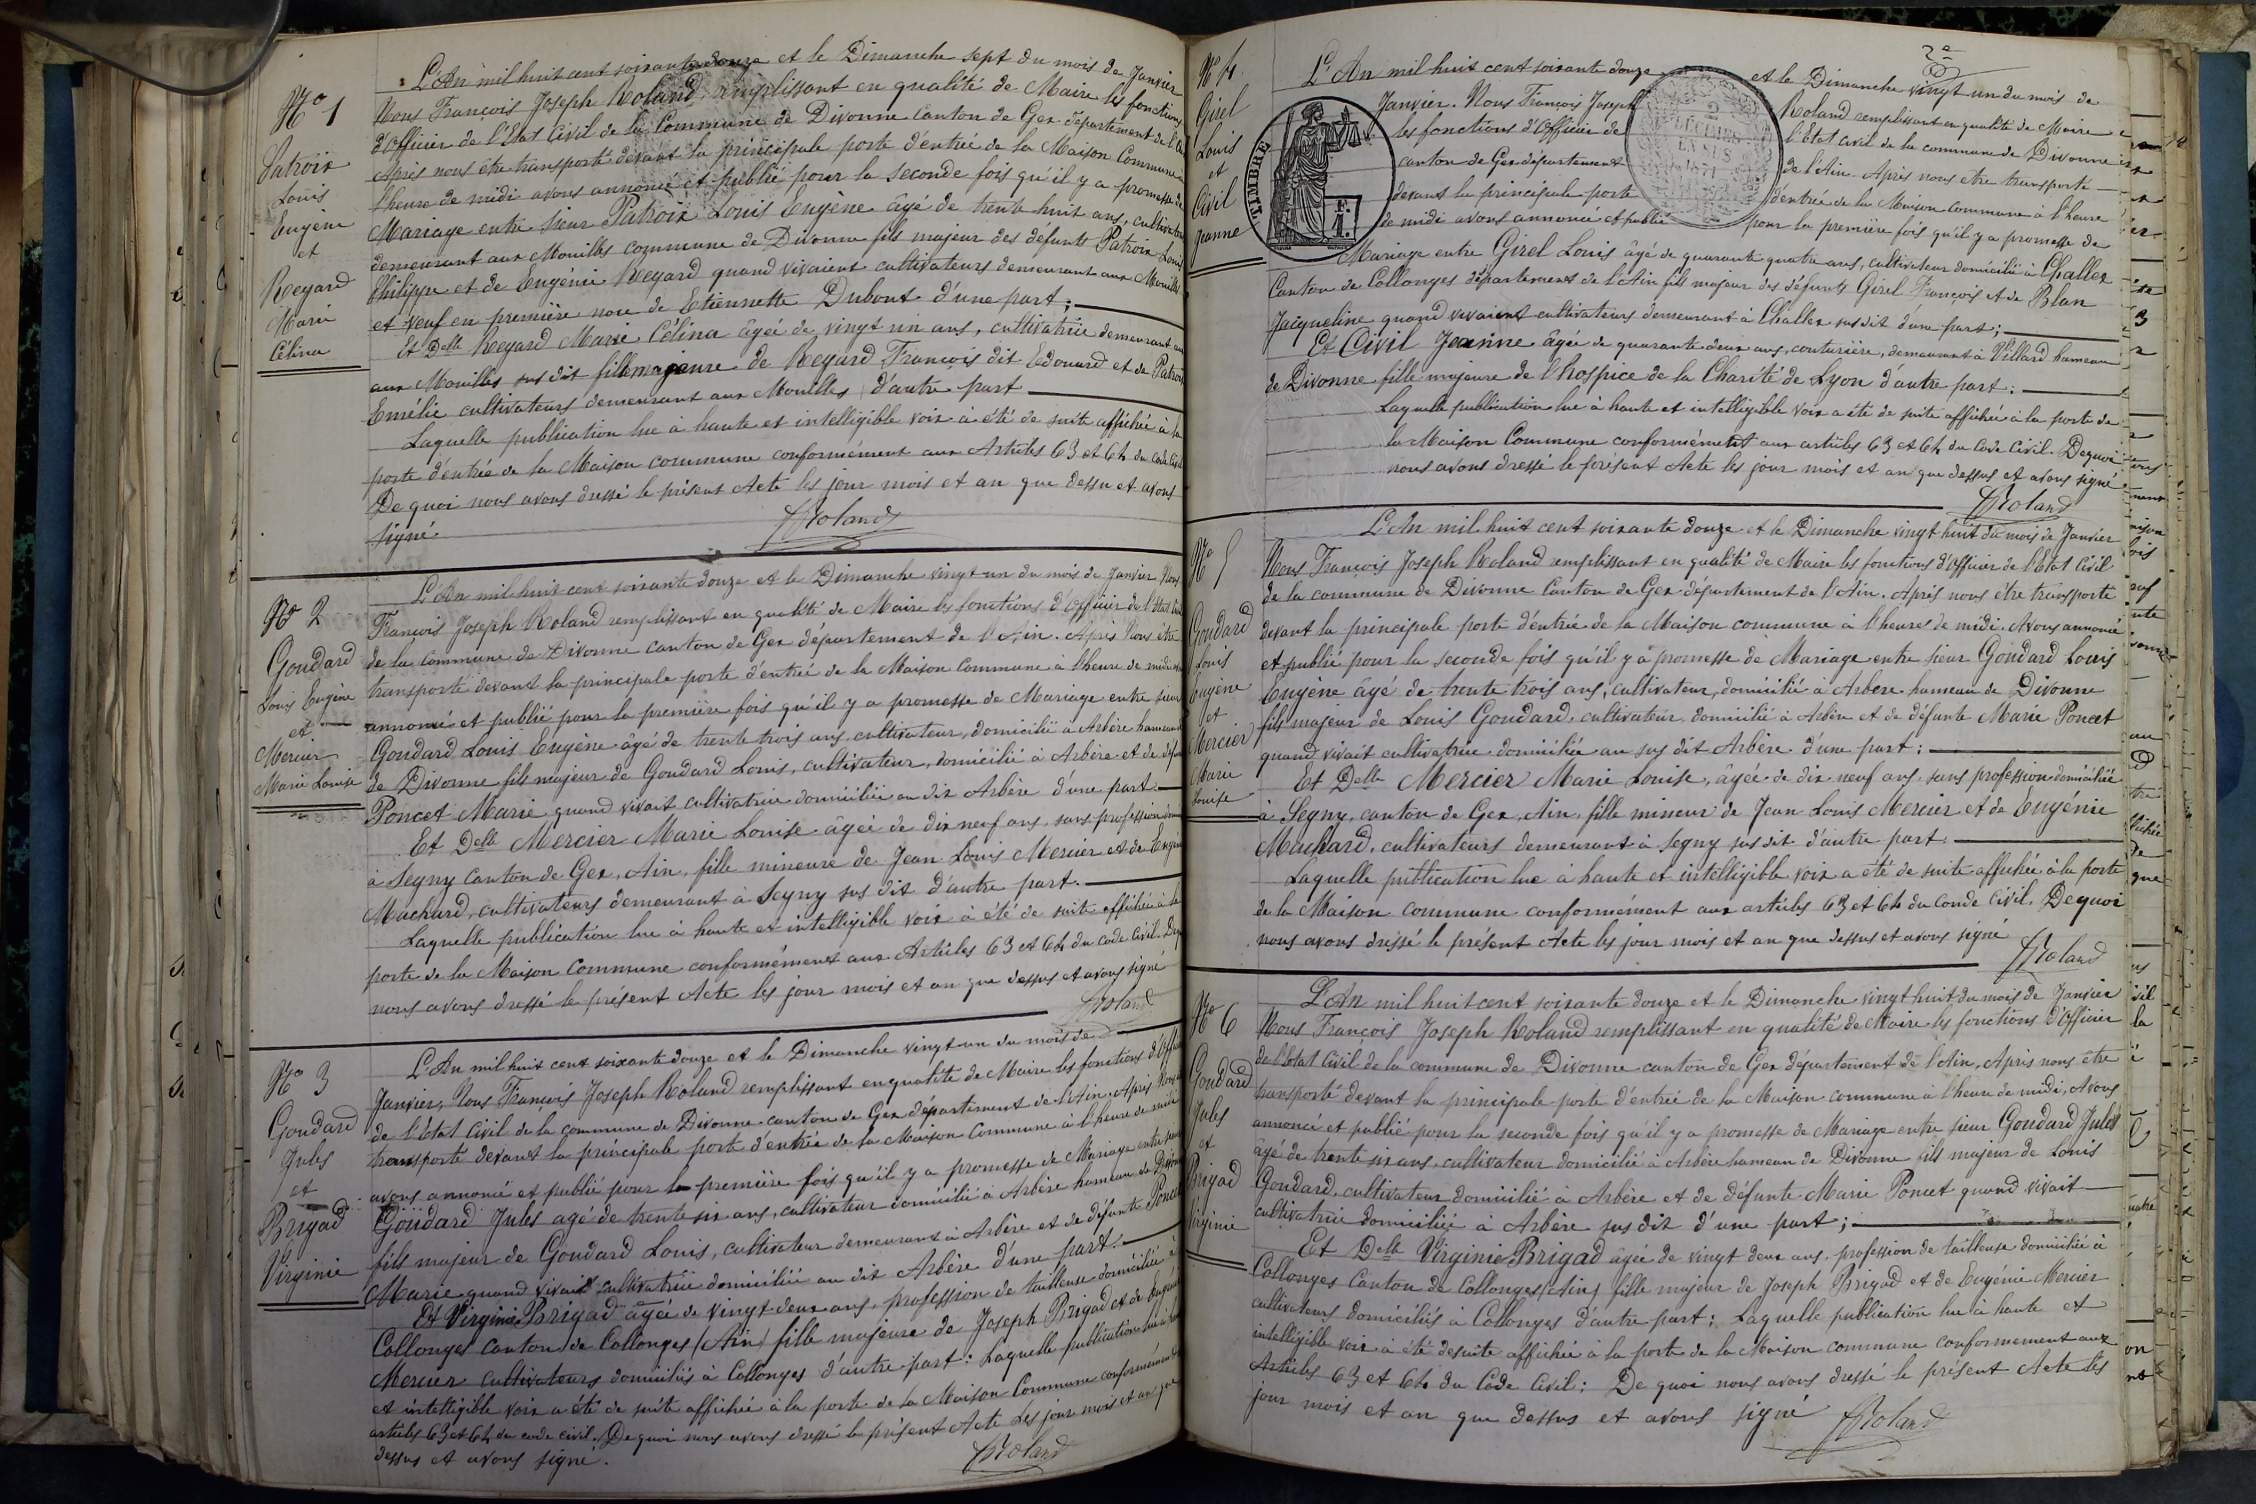 N° 1
Patroix
Louis
Eugène
et
Regard
Marie
Célina
L'An mil huit cent soixante douze et le Dimanche sept du mois de Janvier
Nous François Joseph Roland, remplissant en qualité de Maire les fonctions
d'Officier de l'Etat Civil de la Commune de Divonne canton de Gex département de l'Ain
Après nous être transporté devant la principale porte d'entrée de la Maison Commune à
l'heure de midi avons annoncé et publié pour la seconde fois qu'il y a promesse de
Mariage entre sieur Patroix Louis Eugène âgé de trente huit ans, cultivateur
demeurant aux Mouilles commune de Divonne fils majeur des défunts Patroix Louis
Philippe et de Eugénie Regard quand vivaient cultivateurs demeurant aux Mouilles
et veuf en première noce de Etiennette Dubout d'une part;
Et Delle Regard Marie Célina âgée de vingt un ans, cultivatrice demeurant aux
aux Mouilles sus dit fille majeure de Regard François dit Edouard et de Patroix
Emélie cultivateurs demeurant aux Mouilles d'autre part
Laquelle publication lue à haute et intelligible voix à été de suite affichée à la
porte d'entrée de la Maison commune conformément aux Articles 63 et 64 du code Civil
De quoi nous avons dressé le présent Acte les jour mois et an que dessu et avons
signé.
FRoland
N° 2
Goudard
Louis Eugène
et
Mercier
Marie Louise
L'An mil huit cent soixante douze et le Dimanche vingt un du mois de Janvier Nous
François Joseph Roland remplissant en qualité de Maire les fonctions d'Officier de l'Etat Civil
de la commune de Divonne canton de Gex département de l'Ain. Après Nous être
transporté devant la principale porte d'entrée de la Maison Commune à l'heure de midi
annoncé et publié pour la première fois qu'il y a promesse de Mariage entre sieur
Goudard Louis Eugène âgé de trente trois ans, cultivateur, domicilié à Arbère hameau
de Divonne fils majeur de Goudard Louis, cultivateur, domicilié à Arbère et de défunte
Poncet Marie quand vivait cultivatrice domiciliée au dit Arbère d'une part
Et Delle Mercier Marie Louise âgée de dix neuf ans, sans profession
à Segny canton de Gex, Ain, fille mineure de Jean Louis Mercier et de Eugénie
Machard, cultivateurs demeurant à Segny sus dit d'autre part.
Laquelle publication lue à haute et intelligible voix à été de suite affichée à la
porte de la Maison Commune conformément aux Articles 63 et 64 du code Civil. De quoi
nous avons dressé le présent Acte les jour mois et an que dessus et avons signé
FRoland
N° 3
Goudard
Jules
et
Brigad
Virginie
L'An mil huit cent soixante douze et le Dimanche vingt un du mois de
Janvier, Nous François Joseph Roland remplissant en qualité de Maire les fonctions d'Officier
de l'Etat Civil de la commune de Divonne canton de Gex département de l'Ain. Après Nous être
transporté devant la principale porte d'entrée de la Maison Commune à l'heure de midi
avons annoncé et publié pour la première fois qu'il y a promesse de Mariage entre sieur
Goudard Jules agé de trente six ans, cultivateur domicilié à Arbère hameau de Divonne
fils majeur de Goudard Louis, cultivateur demeurant à Arbère et de défunte Poncet
Marie quand vivait cultivatrice domiciliée au dit Arbère d'une part.
Et Virginie Brigad âgée de vingt deux ans, profession de tailleuse domiciliée à
Collonges canton de Collonges (Ain) fille majeure de Joseph Brigad et de Eugénie
Mercier cultivateurs domiciliés à Collonges d'autre part: Laquelle publication lue à haute
et intelligible voix a été de suite affichée à la porte de la Maison Commune conformément
articles 63 et 64 du code civil. De quoi nous avons dressé le présent Acte les jour mois et an que
dessus et avons signé.
FRoland
2e
N° 4
Girel
Louis
et
Civil
Jeanne
L'An mil huit cent soixante douze et le Dimanche vingt un du mois de
Janvier. Nous François Joseph Roland remplissant en qualité de Maire
les fonctions d'Officier de l'Etat civil de la commune de Divonne
canton de Gex département de l'Ain. Après nous être transporté
devant la principale porte d'entrée de la Maison Commune à l'heure
de midi avons annoncé et publié pour la première fois qu'il y a promesse de
Mariage entre Girel Louis âgé de quarante quatre ans, cultivateur domicilié à Challex
Canton de Collonges département de l'Ain fils majeur des défunts Girel François et de Blan
Jacqueline quand vivaient cultivateurs demeurant à Challex sus dit d'une part;
Et Civil Jeanne âgée de quarante deux ans, couturière, demeurant à Villard hameau
de Divonne, fille majeure de l'hospice de la Charité de Lyon d'autre part:
Laquelle publication lue à haute et intelligible voix a été de suite affichée à la porte de
la Maison Commune conformément aux articles 63 et 64 du Code Civil. De quoi
nous avons dressé le présent Acte les jour mois et an que dessus et avons signé
FRoland
TIMBRE
2
DECIMES
EN SUS
1871
N° 5
Goudard
Louis
Eugène
et
Mercier
Marie
Louise
L'An mil huit cent soixante douze et le Dimanche vingt huit du mois de Janvier
Nous François Joseph Roland remplissant en qualité de Maire les fonctions d'Officier de l'Etat Civil
de la commune de Divonne Canton de Gex département de l'Ain. Après nous être transporté
devant la principale porte d'entrée de la Maison commune à l'heure de midi. Avons annoncé
et publié pour la seconde fois qu'il y a promesse de Mariage entre sieur Goudard Louis
Eugène âgé de trente trois ans, cultivateur, domicilié à Arbère hameau de Divonne
fils majeur de Louis Goudard, cultivateur, domicilié à Arbère et de défunte Marie Poncet
quand vivait cultivatrice domiciliée au sus dit Arbère d'une part:
Et Delle Mercier Marie Louise, âgée de dix neuf ans, sans profession domiciliée
à Segny, canton de Gex, Ain, fille mineur de Jean Louis Mercier et de Eugénie
Machard, cultivateurs demeurant à Segny sus dit d'autre part
Laquelle publication lue à haute et intelligible voix a été de suite affichée à la porte
de la Maison commune conformément aux articles 63 et 64 du Conde Civil. De quoi
nous avons dressé le présent Acte les jour mois et an que dessus et avons signé
FRoland
N° 6
Goudard
Jules
et
Brigad
Virginie
L'An mil huit cent soixante douze et le Dimanche vingt huit du mois de Janvier
Nous François Joseph Roland remplissant en qualité de Maire les fonctions d'Officier
de l'Etat Civil de la commune de Divonne canton de Gex département de l'Ain. Après nous être
transporté devant la principale porte d'entrée de la Maison commune à l'heure de midi, Avons
annoncé et publié pour la seconde fois qu'il y a promesse de Mariage entre sieur Goudard Jules
âgé de trente six ans, cultivateur domicilié à Arbère hameau de Divonne fils majeur de Louis
Goudard, cultivateur domicilié à Arbère et de défunte Marie Poncet quand vivait
cultivatrice domiciliée à Arbère sus dit d'une part;
Et Delle Virginie Brigad âgée de vingt deux ans, profession de tailleuse domiciliée à
Collonges Canton de Collonges (Ain) fille majeur de Joseph Brigad et de Eugénie Mercier
cultivateurs domiciliés à Collonges d'autre part: Laquelle publication lue à haute et
intelligible voix à été desuite affichée à la porte de la Maison commune conformement aux
Articles 63 et 64 du Code Civil: De quoi nous avons dressé le présent Acte les
jour mois et an que dessus et avons signé
FRoland